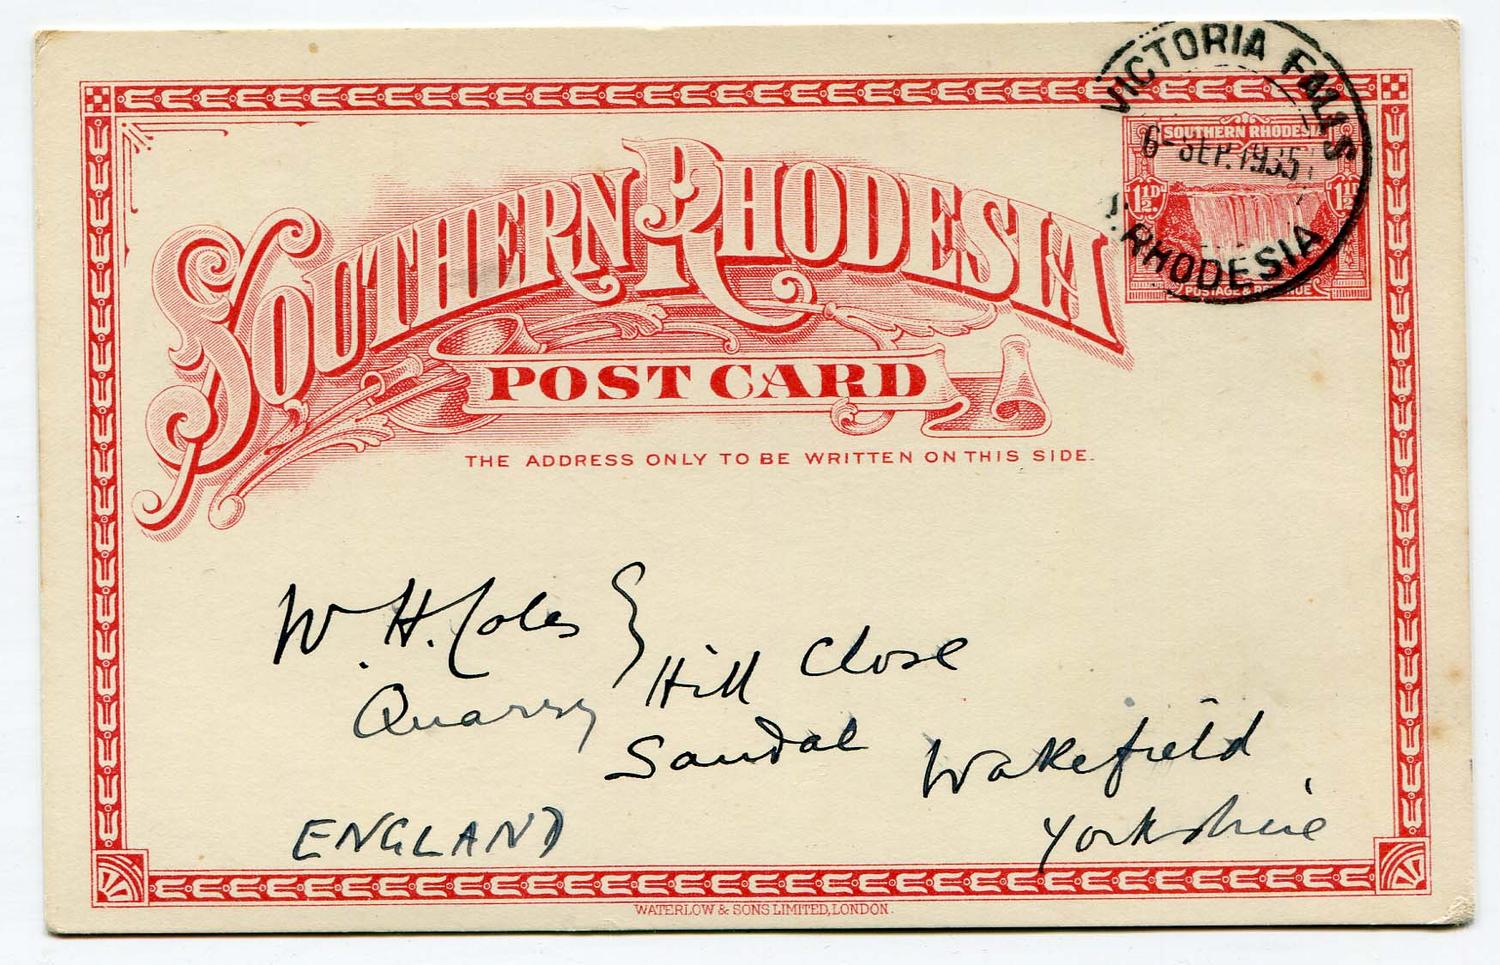 SOUTHERN RHODESIA
POST CARD
THE ADDRESS ONLY TO BE WRITTEN ON THIS SIDE.
VICTORIA FALLS
6-SEP.1935
S. RHODESIA
SOUTHERN RHODESIA
1½D 1½D
POSTAGE & REVENUE
W. H. Coles
Quarry Hill Close
Sandal Wakefield
Yorkshire
ENGLAND
WATERLOW & SONS LIMITED, LONDON.